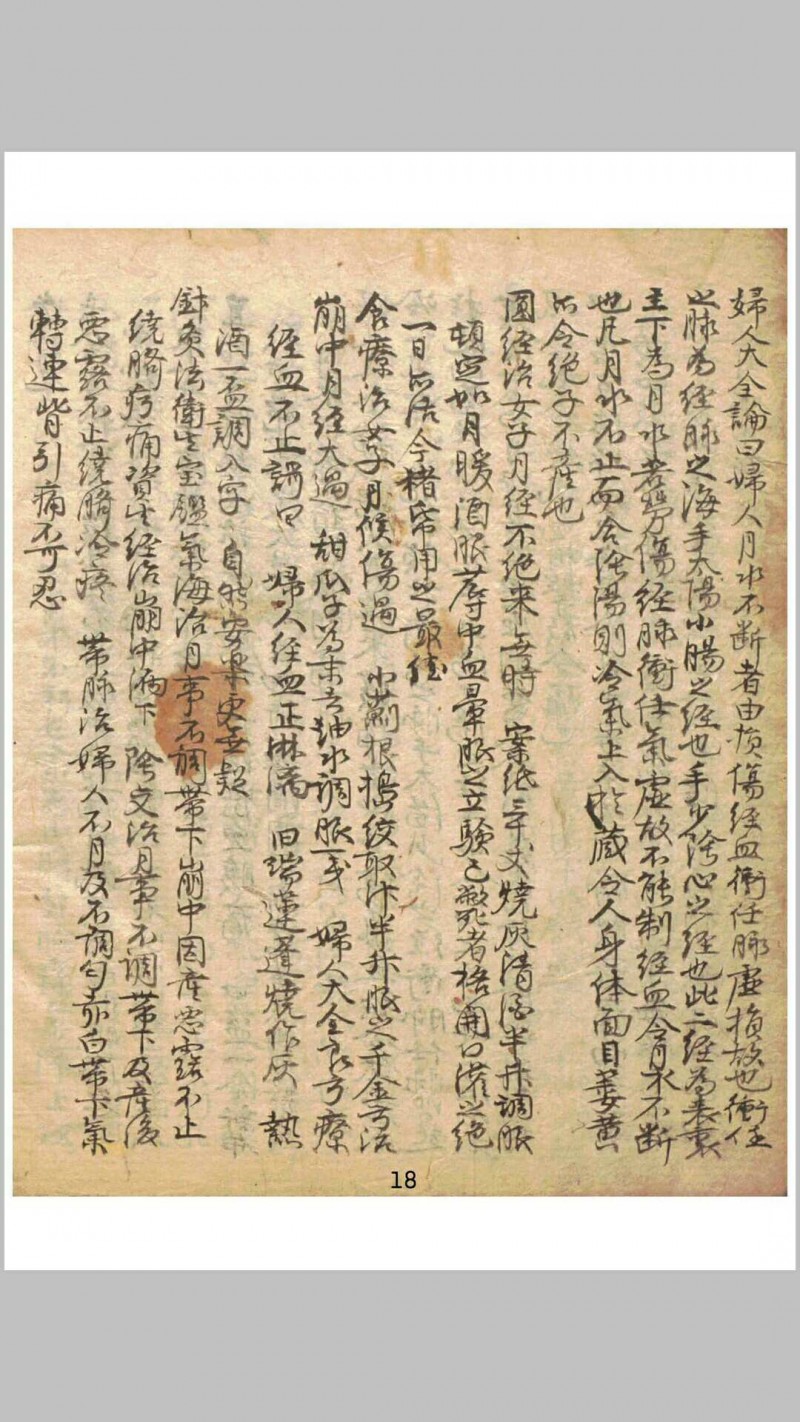 婦人大全論曰婦人月水不断者由損傷経血衝任脉虚損故也衝任
之脉為経脉之海手太陽小腸之経也手少陰心之経也此二経為表裏
主下為月水若勞傷経脉衝任氣虚故不能制経血令月水不断
也凡月水不止而合陰陽則冷氣上入於藏令人身体面目萎黄
亦令絶子不産也
圓経治女子月経不絶来無時 案紙三十丈燒灰清酒半升調服
頓定如月暖酒服蓐中血暈服之立驗已斃者 開口灌之絶
一日亦活今楮帋用之最佳
食療治女子月候傷過 小薊根搗絞取汁半升服之千金方治
崩中月経大過 甜瓜子為末 水調服一戔 婦人大全良方療
経血不止謌曰 婦人経血正淋漓 旧瑞蓮蓬燒作灰 熱
酒一盃調入字 自然安樂更無疑
針灸法衛生宝鑑氣海治月事不調帶下崩中因産悪露不止
繞臍㽲痛資生経治崩中漏下 陰交治月事不調帶下及産後
悪露不止繞臍冷疼 帶脉治婦人不月及不調匀赤白帶下氣
轉連背引痛不可忍
18